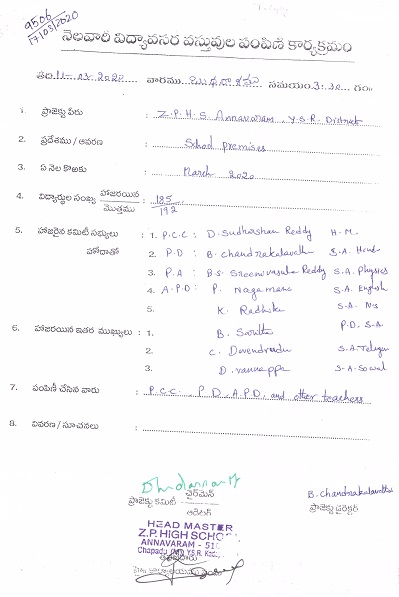 9506
17/03/2020
నెలవారీ విద్యావసర వస్తువుల పంపిణి కార్యక్రమం
తేది: 11-03-2020 వారము బుధవారము సమయం: 3:30 గం
1. ప్రాజెక్టు పేరు : Z.P.H.S Annavaram, Y.S.R. District
2. ప్రదేశము / ఆవరణ : School premises
3. ఏ నెల కొఱకు : March 2020
4. విద్యార్థుల సంఖ్య హాజరయిన / మొత్తము : 185 / 192
5. హాజరైన కమిటీ సభ్యులు : 1. P.C.C: D. Sudharshan Reddy H.M.
హోదాతో 2. P.D: B. Chandrakalavathi S.A. Hindi
3. P.A: B.S. Sreenivasula Reddy S.A. Physics
4. A.P.D: P. Nagamani S.A. English
5. K. Radhika S.A. N.S
6. హాజరయిన ఇతర ముఖ్యులు : 1. B. Saritha P.D. S.A.
2. C. Devendrudu S.A. Telugu
3. D. vannappa S.A. Social
7. పంపిణీ చేసిన వారు : P.C.C, P.D, A.P.D, and other teachers
8. వివరణ / సూచనలు :
ప్రాజెక్టు కమిటీ చైర్‌మెన్
B. Chandrakalavathi
ప్రాజెక్టు డైరెక్టర్
HEAD MASTER
Z.P. HIGH SCHOOL
ANNAVARAM - 51
Chapadu (MD) Y.S.R. Kad